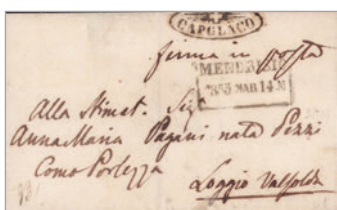 CAPOLAGO
ferma in posta
MENDRISIO
1853 MAR 14
Alla Stimat. Sigr
Anna Maria Pagani nata Pezzi
Como Porlezza
Loggio Valsolda